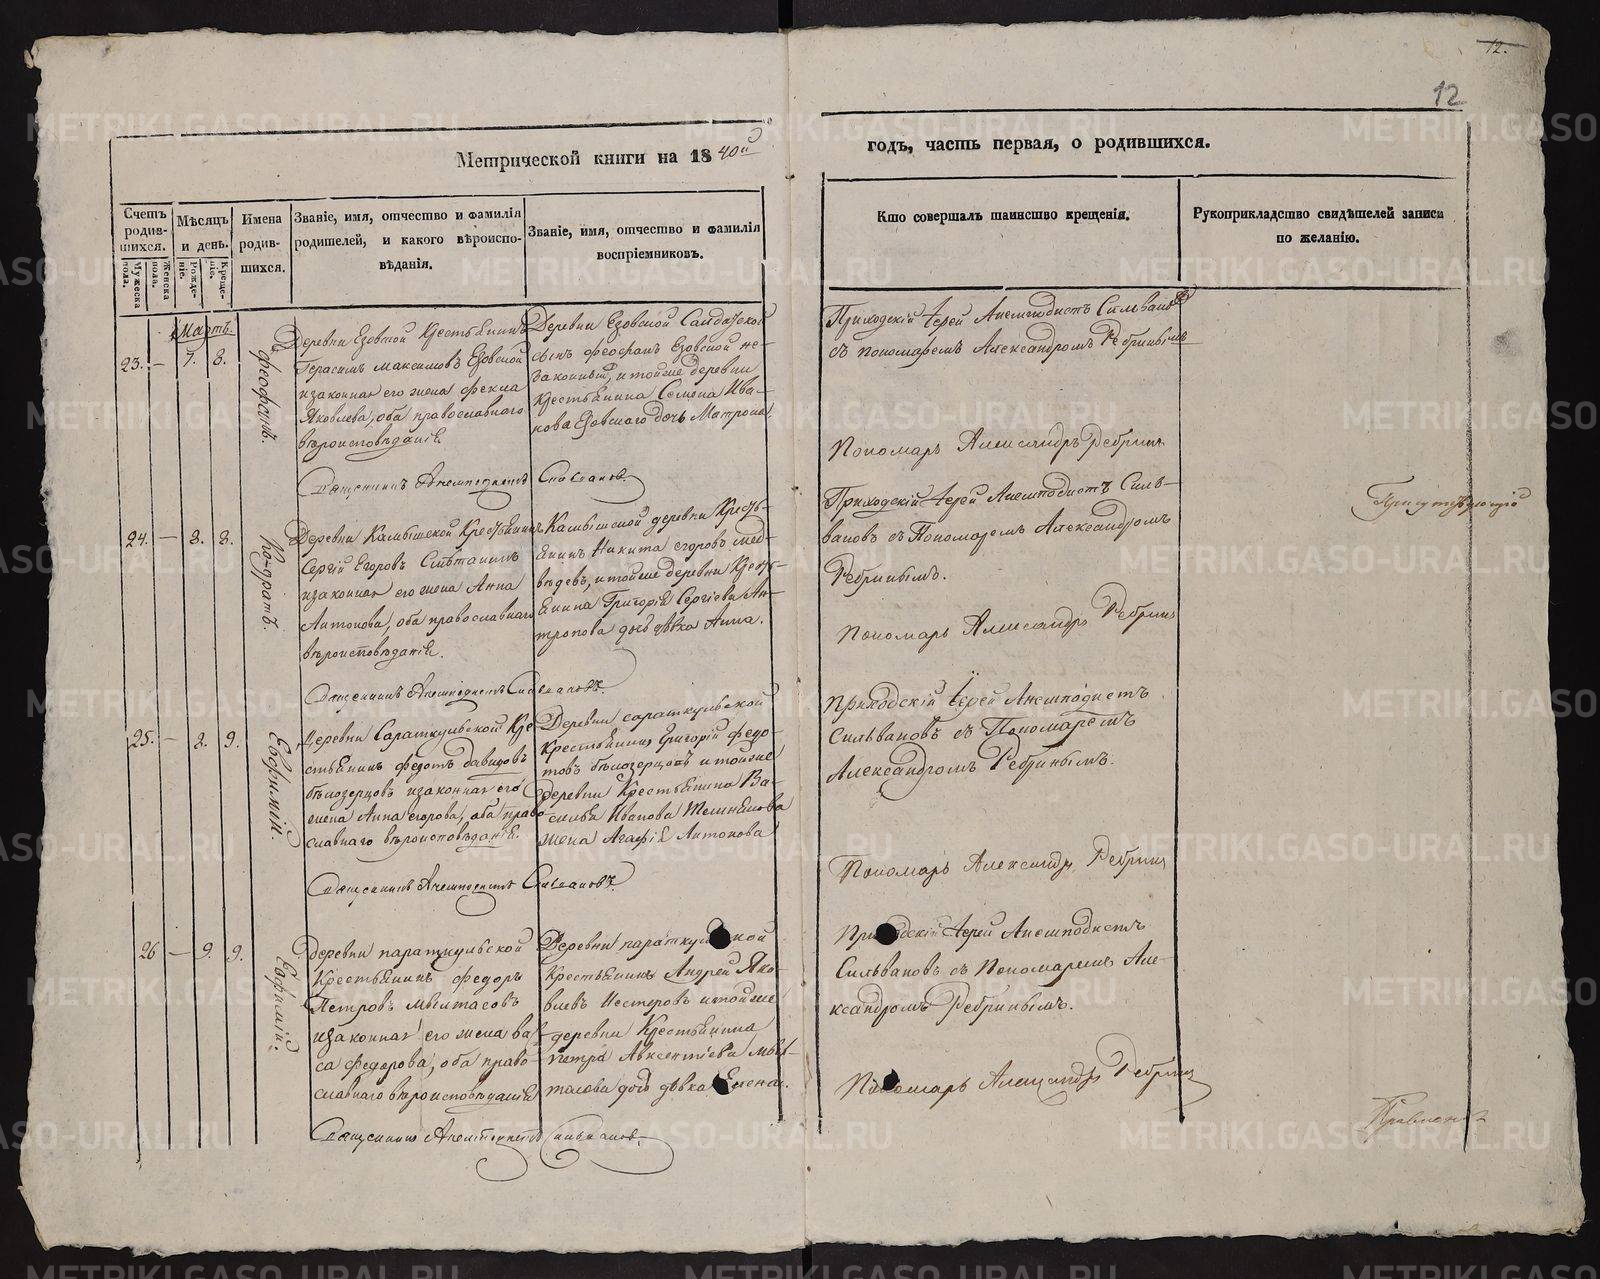 12.
12
Метрической книги на 1840й
годъ, часть первая, о родившихся.
Счетъ родив-шихся.
Мужеска пола.
Женска пола.
Мѣсяцъ и день.
Рожде-ніе.
Креще-ніе.
Имена родив-шихся.
Званіе, имя, отчество и фамилія
родителей, и какого вѣроиспо-
вѣданія.
Званіе, имя, отчество и фамилія
воспріемниковъ.
Кто совершалъ таинство крещенія.
Рукоприкладство свидѣтелей записи
по желанію.
Мартъ
23. — 7. 8.
Феофанъ.
Деревни Езовской Крестьянинъ
Герасимъ Максимовъ Езовской
и законная его жена Фекла
Яковлева, оба православнаго
вѣроисповѣданія
Деревни Езовской Салдатской
сынъ Феофанъ Езовской не-
законный, и тойже деревни
крестьянина Семена Ива-
нова Езовскаго дочь Матрона.
Приходскій Іерей Анемподистъ Сильвановъ
съ пономаремъ Александромъ Ребринымъ
Пономарь Александръ Ребринъ
Священникъ Анемподистъ Сильвановъ.
24. — 8. 8.
Кодратъ.
Деревни Камышской Крестьянинъ
Сергій Егоровъ Смѣтанинъ
и законная его жена Анна
Антонова, оба православнаго
вѣроисповѣданія.
Камышской деревни Кресть-
янинъ Никита Егоровъ Мед-
вѣдевъ, и тойже деревни Кресть-
янина Григорія Сергіева Ан-
тропова дочь дѣвка Анна.
Приходскій Іерей Анемподистъ Силь-
вановъ съ Пономаремъ Александромъ
Ребринымъ.
Пономарь Александръ Ребринъ
Священникъ Анемподистъ Сильвановъ.
25. — 8. 9.
Евфимій.
Деревни Сараткульской Кре-
стьянинъ Федотъ Давидовъ
Бѣлозерцовъ и законная его
жена Анна Егорова, оба право-
славнаго вѣроисповѣданія.
Деревни Сараткульской
Крестьянинъ Григорій Федо-
товъ Бѣлозерцовъ и тойже
деревни Крестьянина Ва-
силья Иванова
жена Агафія Антонова
Приходскій Іерей Анемподистъ
Сильвановъ съ Пономаремъ
Александромъ Ребринымъ.
Пономарь Александръ Ребринъ
Священникъ Анемподистъ Сильвановъ.
26 — 9. 9.
Евфимій.
Деревни Параткульской
Крестьянинъ Федоръ
Петровъ Мылтасовъ
и законная его жена Ва-
са Федорова, оба право-
славнаго вѣроисповѣданія
Деревни Параткульской
Крестьянинъ Андрей Яко-
влевъ Нестеровъ и тойже
деревни Крестьянина
Петра Авксентіева Мыл-
тасова дочь дѣвка Елена.
Приходскій Іерей Анемподистъ
Сильвановъ съ Пономаремъ Але-
ксандромъ Ребринымъ.
Пономарь Александръ Ребринъ
Священникъ Анемподистъ Сильвановъ.
METRIKI.GASO-URAL.RU